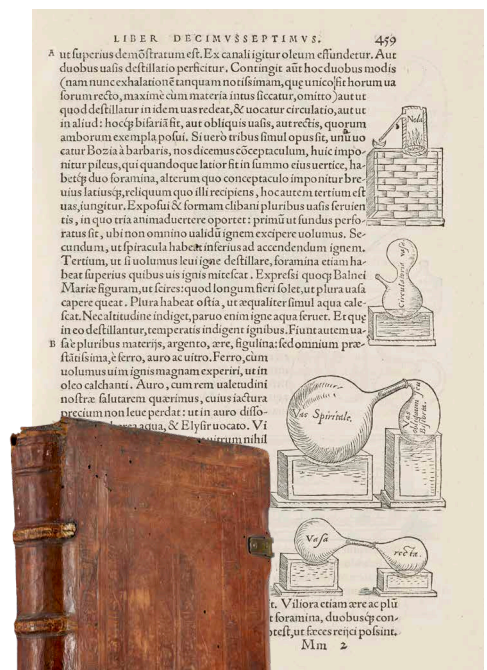 LIBER DECIMVSSEPTIMVS. 459
A ut superius demõstratum est. Ex canali igitur oleum effundetur. Aut
duobus uasis destillatio perficitur. Contingit aũt hoc duobus modis
(nam nunc exhalationẽ tanquam notissimam, quę unico fit horum ua
forum recto, maximè cùm materia intus siccatur, omitto) aut ut
quod destillatur in idem uas redeat, & uocatur circulatio, aut ut
in aliud: hocq́; bifariã fit, aut obliquis uasis, aut rectis, quorum
amborum exempla posui. Si uerò tribus simul opus sit, unũ uo
catur Bozia à barbaris, nos dicemus cõceptaculum, huic impo-
nitur pileus, qui quandoque latior fit in summo eius uertice, ha-
betq́; duo foramina, alterum quo conceptaculo imponitur bre-
uius latiusq́;, reliquum quo illi recipiens, hoc autem tertium est
uas, iungitur. Exposui & formam clibani pluribus uasis seruien
tis, in quo tria animaduertere oportet: primũ ut fundus perfo-
ratus sit, ubi non omnino ualidũ ignem excipere uolumus. Se-
cundum, ut spiracula habeat inferius ad accendendum ignem.
Tertium, ut si uolumus leui igne destillare, foramina etiam ha-
beat superius quibus uis ignis mitescat. Expressi quoq́; Balnei
Mariæ figuram, ut scires: quod longum fieri solet, ut plura uasa
capere queat. Plura habeat ostia, ut æqualiter simul aqua cale-
scat. Nec altitudine indiget, paruo enim igne aqua feruet. Et quę
in eo destillantur, temperatis indigent ignibus. Fiunt autem ua-
B sa è pluribus materijs, argento, ære, figulina: sed omnium præ-
stãtissima, è ferro, auro ac uitro. Ferro, cùm
uolumus uim ignis magnam experiri, ut in
oleo calchanti. Auro, cum rem ualetudini
nostræ salutarem quærimus, cuius iactura
precium non leue perdat: ut in auro disso-
aqua, & Elysir uocato. Vi
uitrum nihil
Vas Spiritale.
Vasa
rectæ.
Circulatoria vasa
t. Viliora etiam ære ac plũ
t foramina, duobusq́; con-
otest, ut fæces reijci possint.
Mm 2